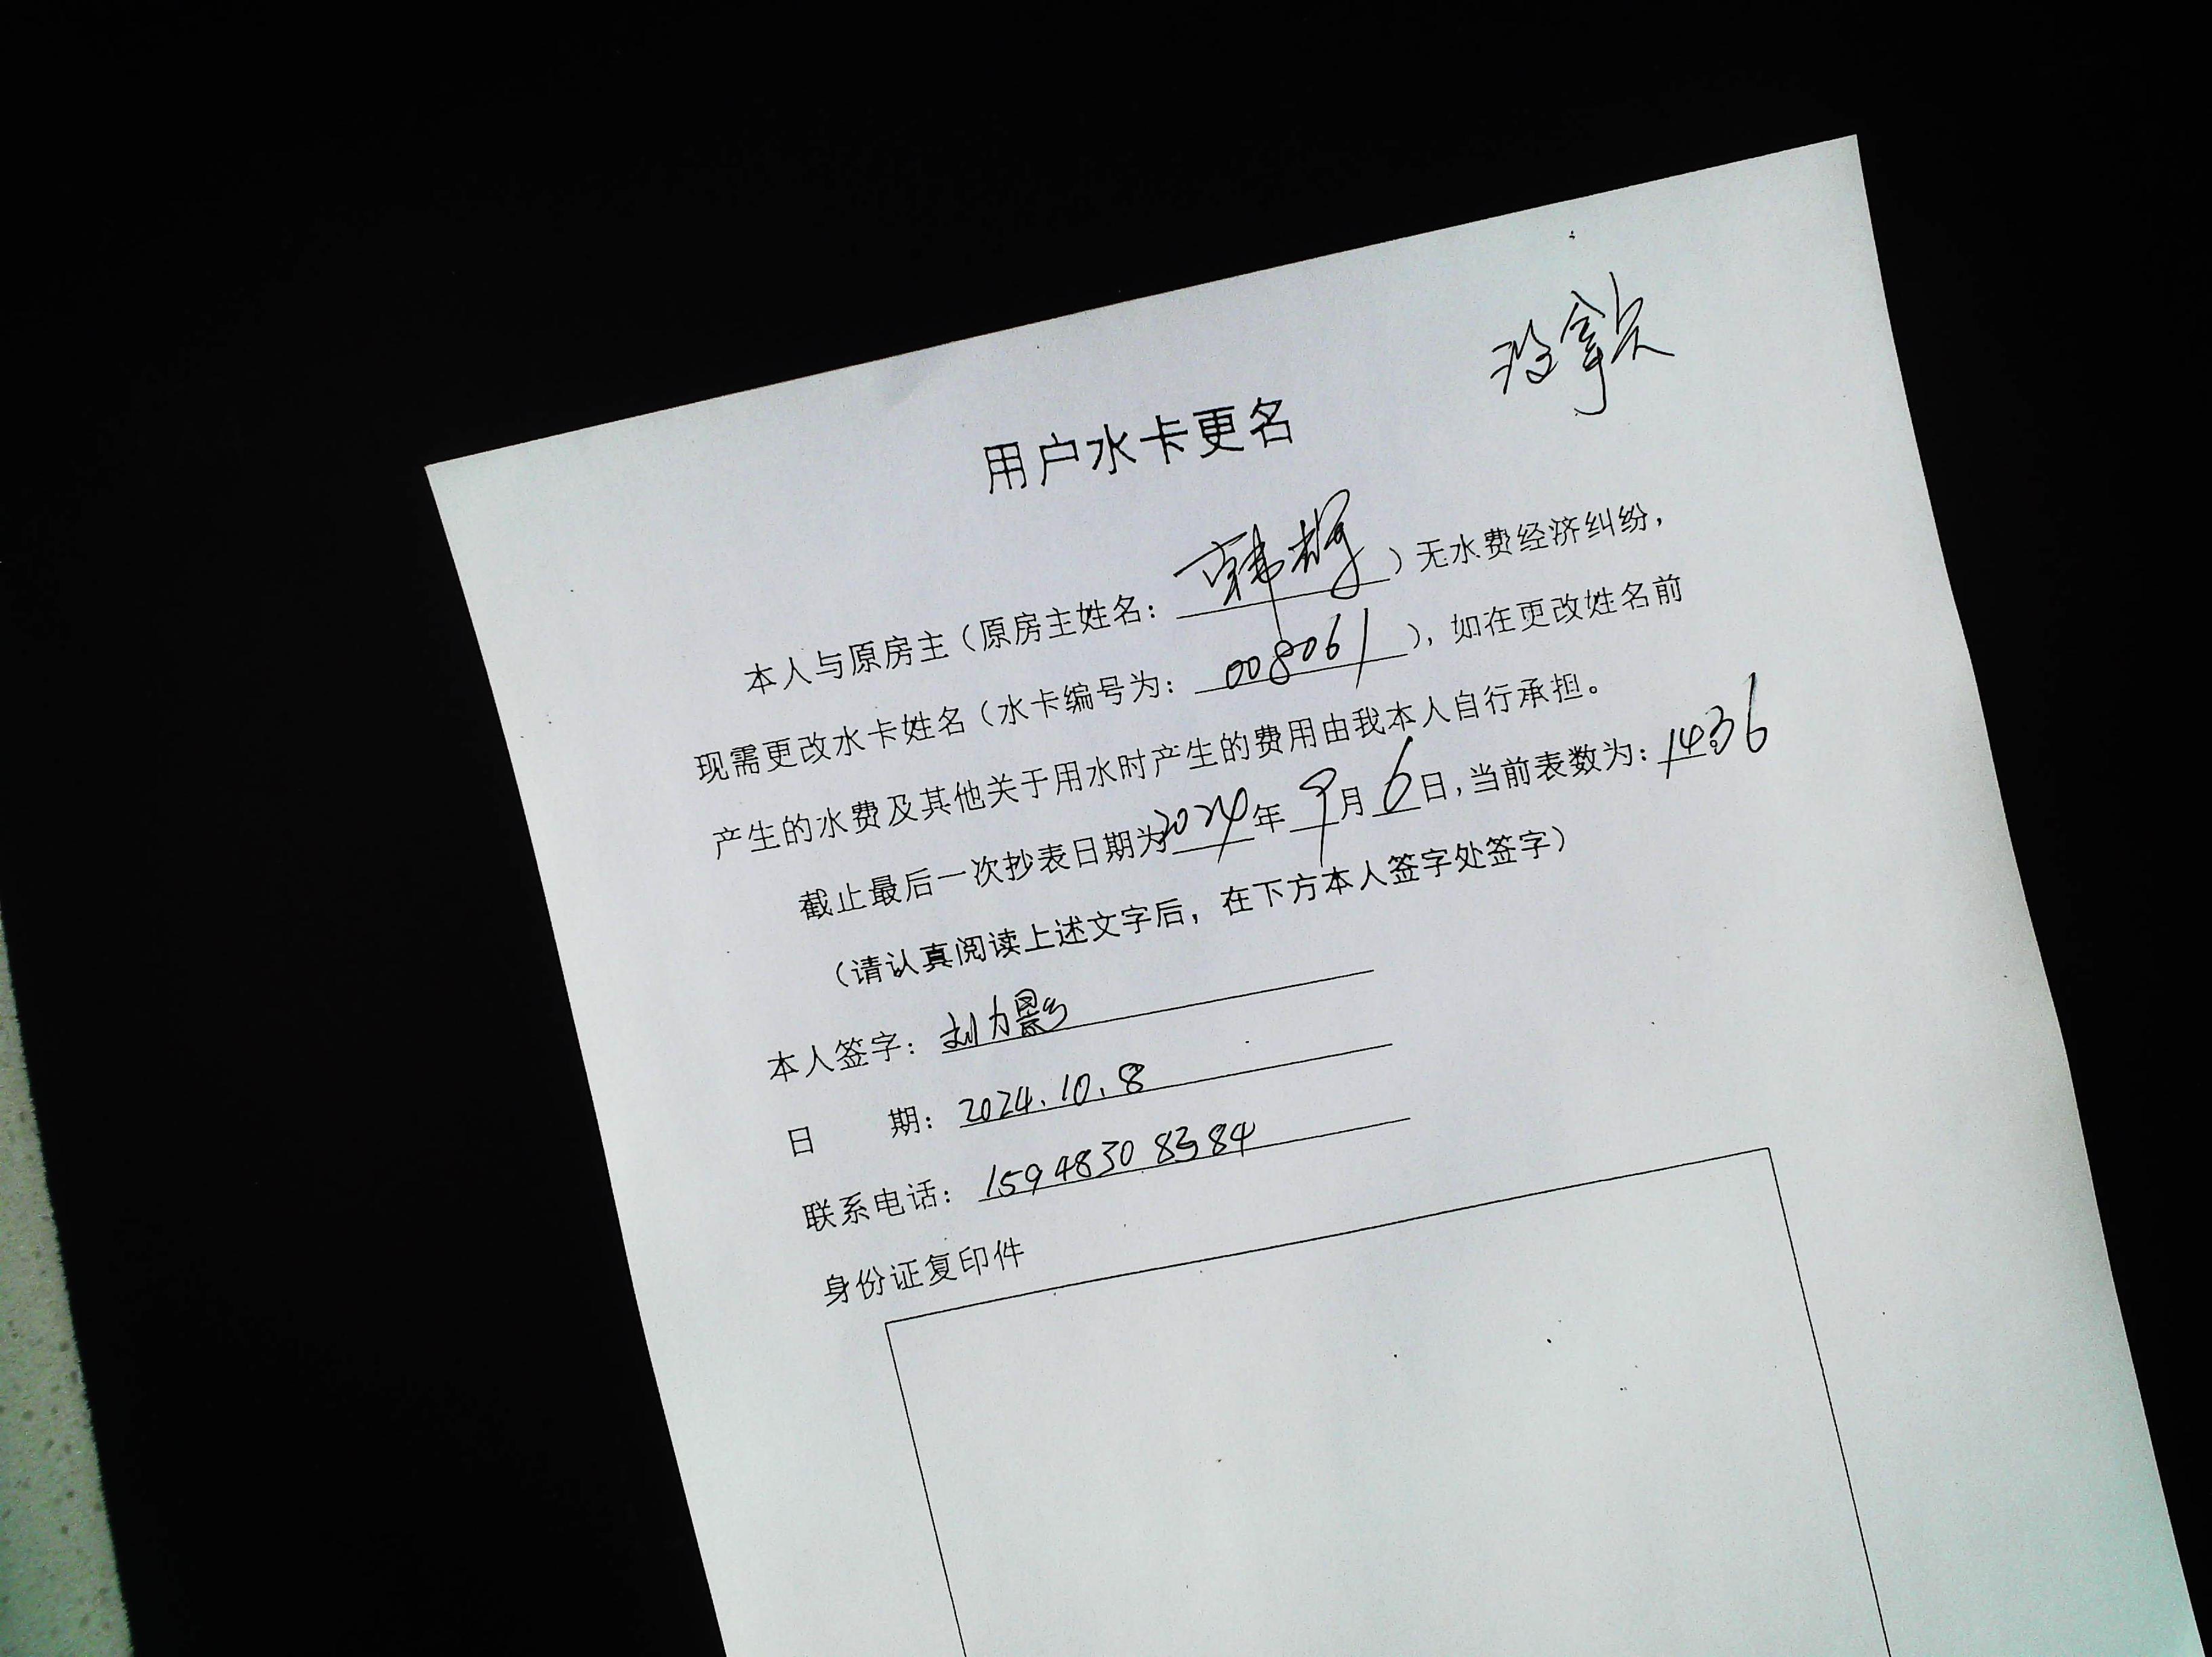 没拿卡
用户水卡更名
本人与原房主（原房主姓名：韩辉）无水费经济纠纷，
现需更改水卡姓名（水卡编号为：008061），如在更改姓名前
产生的水费及其他关于用水时产生的费用由我本人自行承担。
截止最后一次抄表日期为2024年9月6日，当前表数为：1436
（请认真阅读上述文字后，在下方本人签字处签字）
本人签字：刘力影
日 期：2024.10.8
联系电话：159 4830 8384
身份证复印件